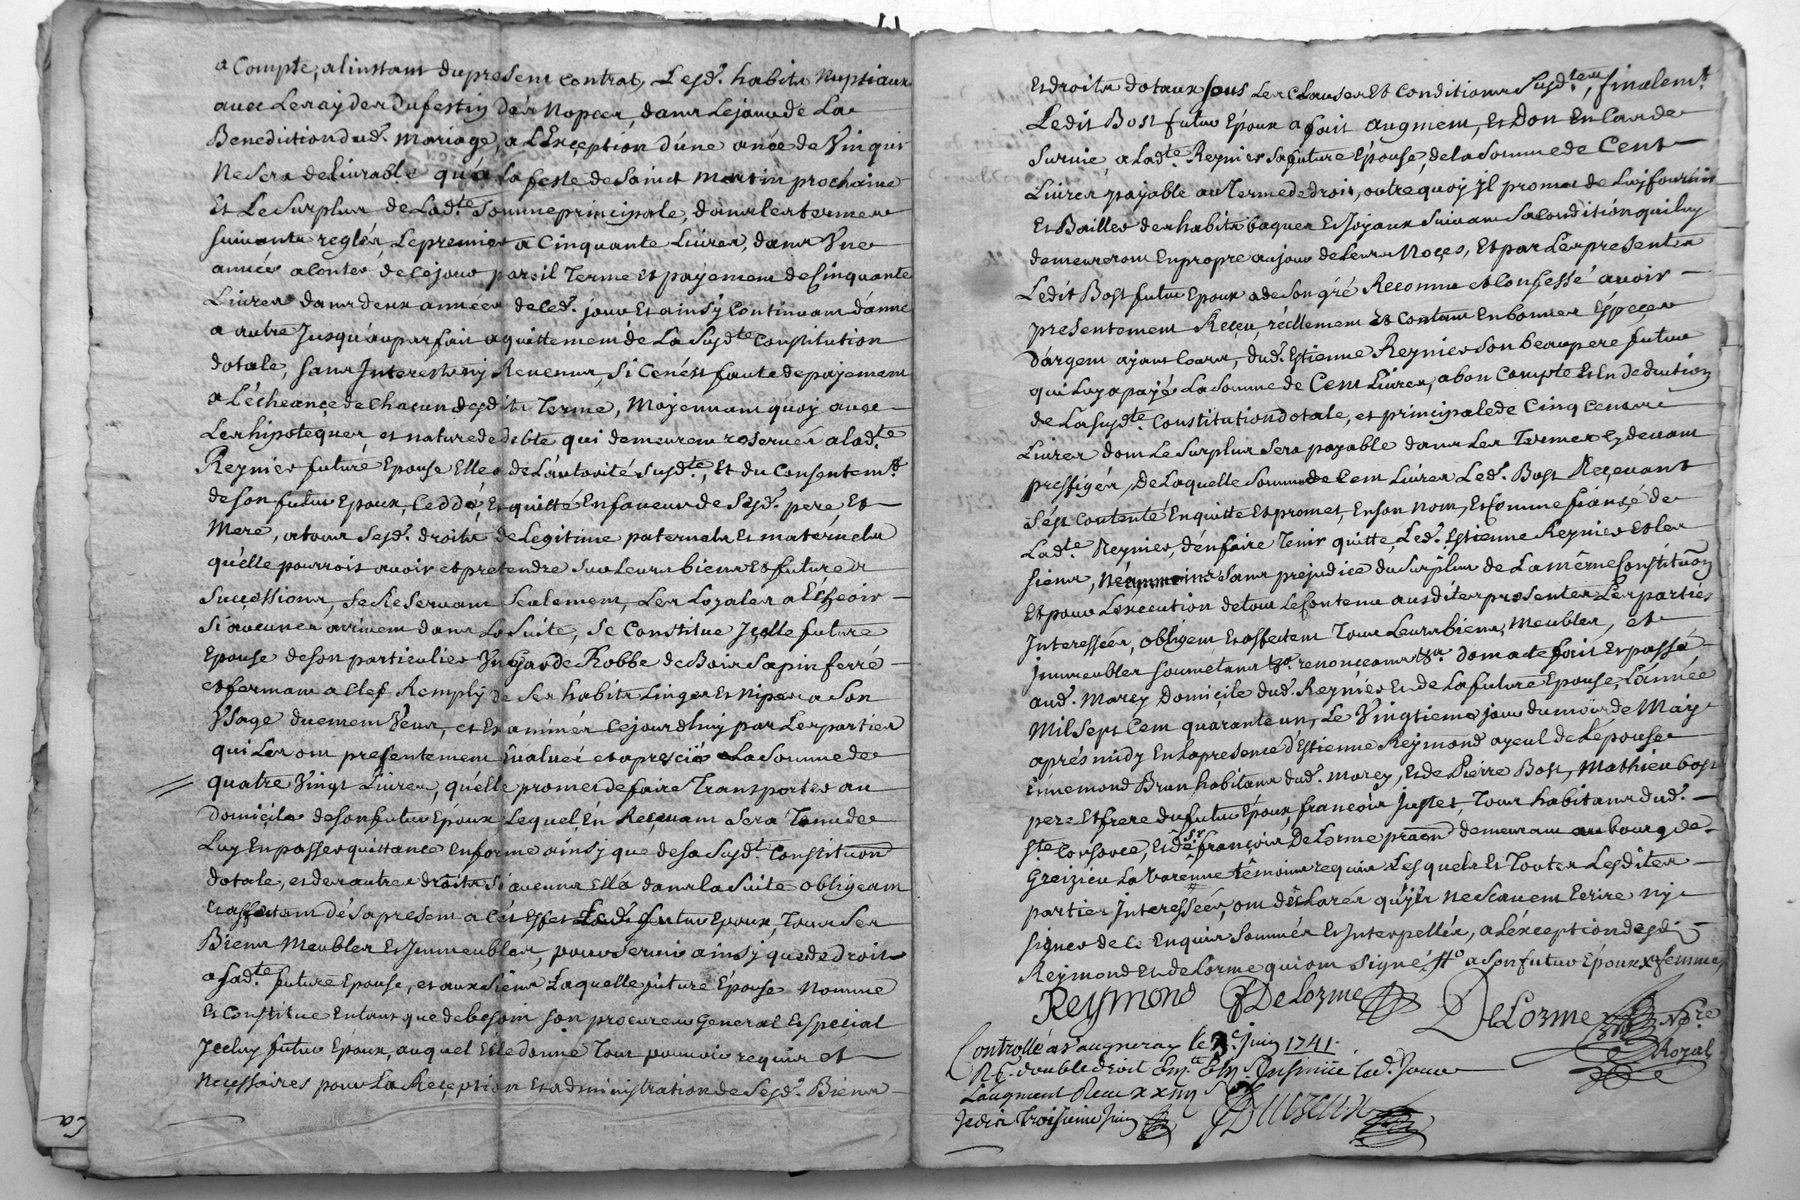 a Compte, a linstant du present contrat, Lesd.s habits Nuptiaux
avec Les aydes du festin des Nopces, dans Le jour de La
Benediction dud.t mariage, a L'Exception d'une anée de Vin qui
Ne sera delivrable qu'a la feste de Sainct Martin prochaine
Et Le Surplus de Lad.te Somme principale, dans les termes
suivants reglés, Le premier a Cinquante Livres, dans Une
année a Conter de Ce jour pareil Terme et payement de Cinquante
Livres dans deux années de Ced.t jour Et ainsy Continuant d'année
a autre Jusqu'au parfait aquittement de La Susd.te Constitution
dotale, sans Interest ny Revenus, Si Ce n'est faute de payement
a L'écheance de Chacun desdits Terme, Moyennant quoy avec
Les hipoteques et nature de debte qui demeurent reservés a lad.te
Reynier future Epouse Elle a de L'autorité Susd.te, Et du Consentem.t
de son futur Epoux, Ceddé, Et quitté En faveur de Sesd.s pere, Et
Mere, a tous Sesd.s droits de Legitime paternels Et maternels
qu'elle pourroit avoir et pretendre Sur Leurs biens Et futures
Successions, se Reservant Seulement, Les Loyales a Escheoir
Si aucunes arrivent dans La Suite, Se Constitue Jcelle future
Epouse de son particulier Un Garde Robbe de Bois Sapin ferré
et fermant a Clef Remply de Ses habits Linges Et Nipes a Son
Usage duement Veus, et Examinés Cejourdhuy par Les parties
qui Les ont presentement évalués et apreciés a La Somme de
quatre Vingt Livres, qu'elle promet de faire Transporter au
Domicile de son futur Epoux Lequel En Recevant Sera Tenu de
Luy En passer quittance En forme ainsy que de sa Susd.t Constitution
dotale, et des autres droits si aucuns Elle a dans la Suite obligeant
et affectant dés a present a Cét Effet Led.t futur Epoux, Tous Ses
Biens Meubles Et Immeubles, pour Servir ainsy que de droit
a Sad.te future Epouse, et aux Siens Laquelle future Epouse Nomme
Et Constitue En tant que de besoin Son procureur General Et Special
Jceluy futur Epoux, auquel Elle donne Tout pouvoir requis Et
Necessaires pour La Reception Et administration de Sesd.s Biens
Et droits dotaux sous Les Clauses Et Conditions Susd.tes, finalem.t
Ledit Bost futur Epoux a fait augment, Et Don En Cas de
Survie, a Lad.te Reynier Sa future Epouse, de la Somme de Cent
Livres payable au Terme de droit, outre quoy Jl promet de Luy fournir
Et Bailler des habits bagues Et Joyaux Suivant Sa Condition qui luy
demeureront En propre au jour de Leurs Noçes, Et par Les presentes
Ledit Bost futur Epoux a de Son gré Reconnu et Confessé avoir
presentement Reçeu, réellement Et Contant En bonnes Especes
d'argent ayant Cours, dud.t Estienne Reynier Son beaupere futur
qui Luy a payé La Somme de Cent Livres, a bon Compte Et En Deduction
de La Susd.te Constitution dotale, et principale de Cinq Cent
Livres dont Le Surplus Sera payable dans Les Termes Cy devant
preffigés, De Laquelle Somme de Cent Livres Led.t Bost Reçevant
S'est Contenté En quitte Et promet, En son Nom, Et Comme fiancé de
Lad.te Reynier, d'en faire Tenir quitte Led.t Estienne Reynier Et les
Siens, Néanmoins Sans prejudice du Surplus de La même Constitution
Et pour L'execution de tout Le Contenu ausdites presentes Les parties
Interessées, obligent Et affectent Tous Leurs biens, Meubles, et
Immeubles Soumetants &a. renonçeants &a. Dont acte fait Et passé
aud.t Marcy Domicile dud.t Reynier Et de La future Epouse, L'année
Mil Sept Cent quarante un, Le Vingtieme jour du mois de May
aprés midy En La presence d'Estienne Reymond ayeul de L'epouse
Ennemond Brun habitants dud.t Marcy, Et de Pierre Bost, Mathieu Bost
pere Et frere du futur Epoux, françois Juttet Tous habitans dud.t
S.te Consorce, Et de s.r françois De Lorme praon demeurant au bourg de
Greizieu La Varenne têmoins requis Lesquels Et Toutes Lesdites
parties Interessées, ont déclarés qu'ils Ne Scavent Ecrire Ny
Signer de Ce Enquis Sommés Et Interpellés, a L'éxception desd.
Reymond Et de Lorme qui ont Signé, a son futur Epoux femme
Reymond F DeLorme DeLorme N.re
Royal
Controllé à Vaugneray le 3.e juin 1741.
double droit Insinué led.t Jour
L'augment Receu
Jedis Troisieme Juin